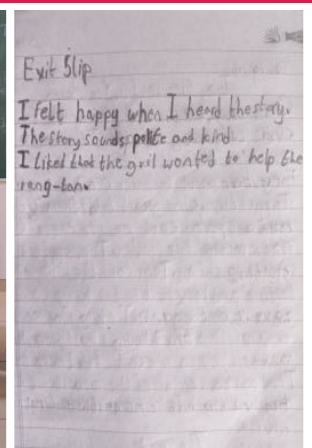 Exit Slip
I felt happy when I heard the story.
The story sounds polite and kind
I liked that the gril wonted to help the
rang-tan.